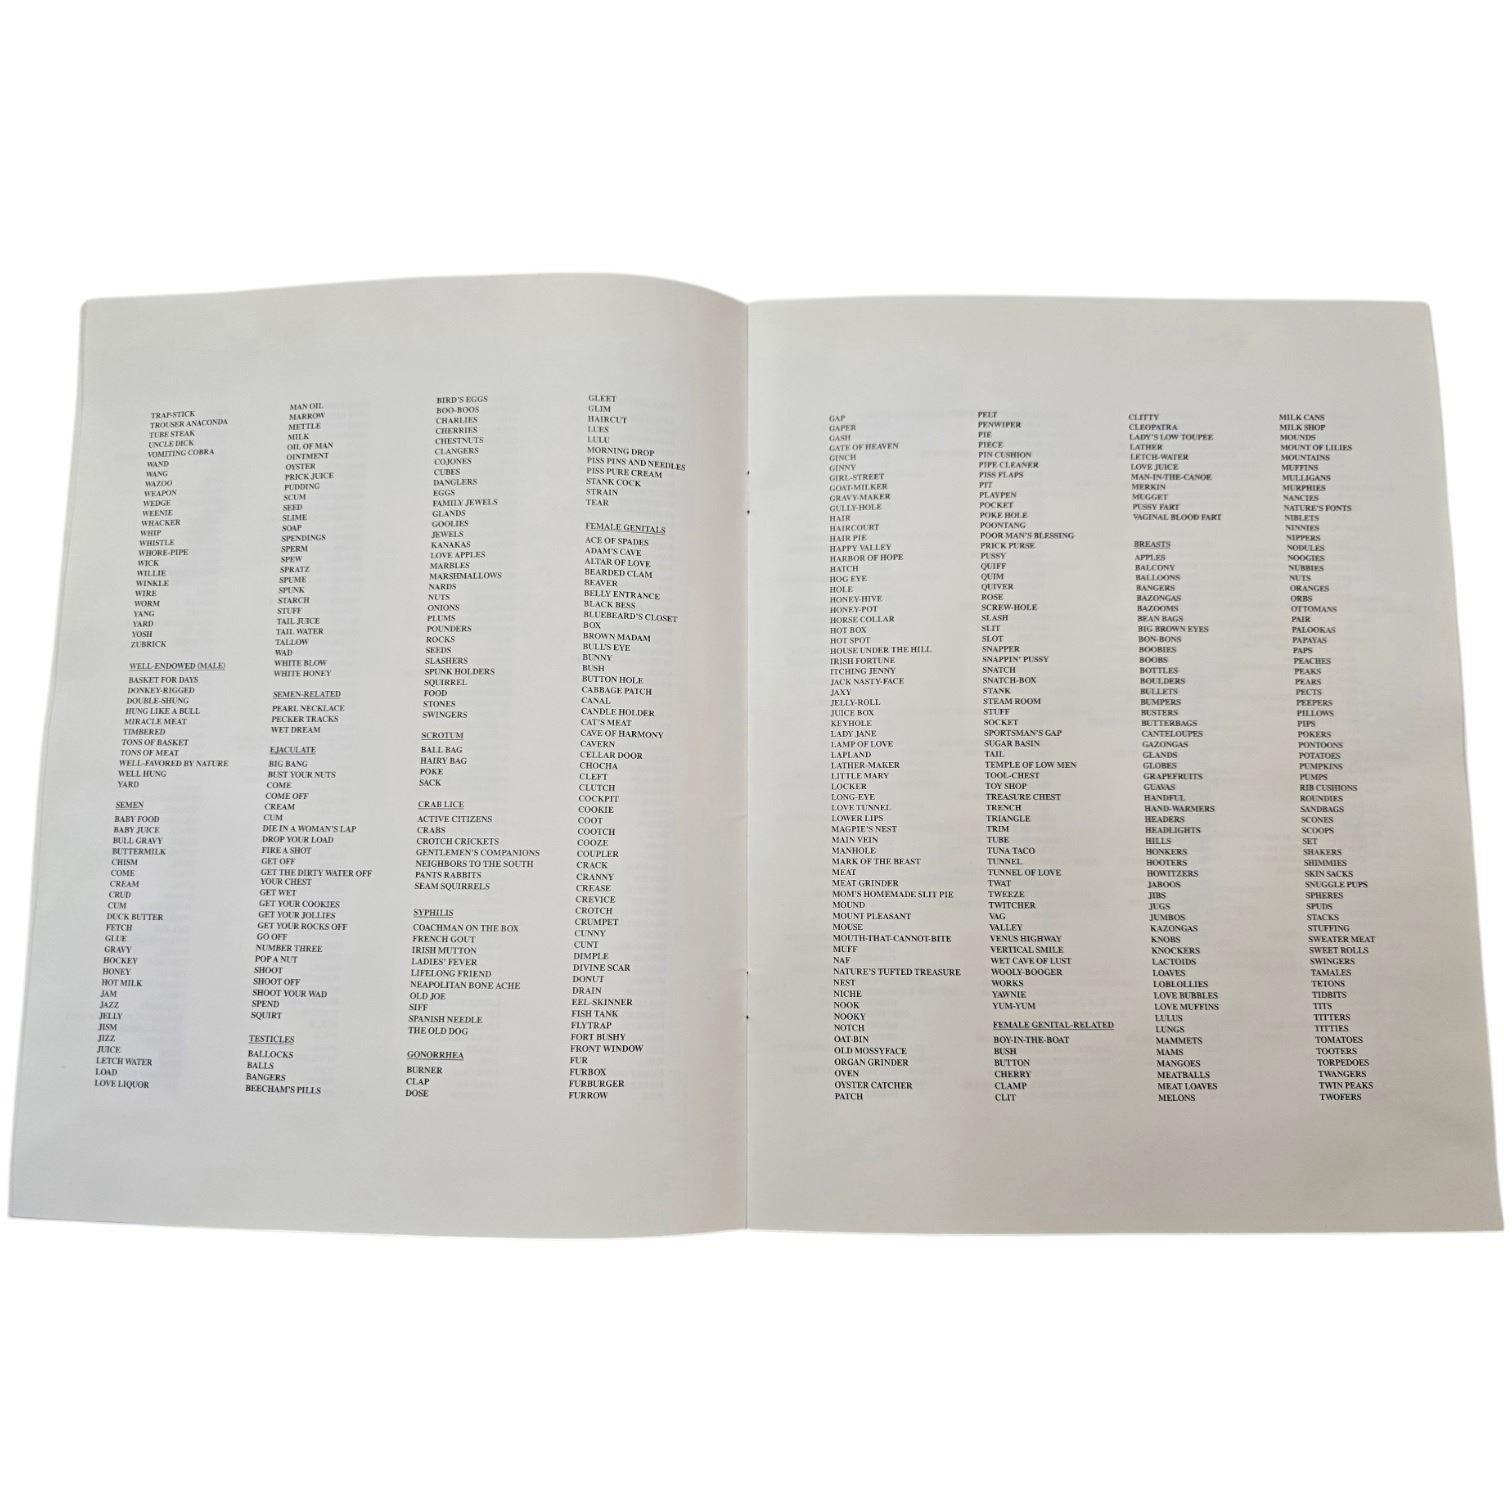 TRAP-STICK
TROUSER ANACONDA
TUBE STEAK
UNCLE DICK
VOMITING COBRA
WAND
WANG
WAZOO
WEAPON
WEDGE
WEENIE
WHACKER
WHIP
WHISTLE
WHORE-PIPE
WICK
WILLIE
WINKLE
WIRE
WORM
YANG
YARD
YOSH
ZUBRICK
WELL-ENDOWED (MALE)
BASKET FOR DAYS
DONKEY-RIGGED
DOUBLE-SHUNG
HUNG LIKE A BULL
MIRACLE MEAT
TIMBERED
TONS OF BASKET
TONS OF MEAT
WELL-FAVORED BY NATURE
WELL HUNG
YARD
SEMEN
BABY FOOD
BABY JUICE
BULL GRAVY
BUTTERMILK
CHISM
COME
CREAM
CRUD
CUM
DUCK BUTTER
FETCH
GLUE
GRAVY
HOCKEY
HONEY
HOT MILK
JAM
JAZZ
JELLY
JISM
JIZZ
JUICE
LETCH WATER
LOAD
LOVE LIQUOR
MAN OIL
MARROW
METTLE
MILK
OIL OF MAN
OINTMENT
OYSTER
PRICK JUICE
PUDDING
SCUM
SEED
SLIME
SOAP
SPENDINGS
SPERM
SPEW
SPRATZ
SPUME
SPUNK
STARCH
STUFF
TAIL JUICE
TAIL WATER
TALLOW
WAD
WHITE BLOW
WHITE HONEY
SEMEN-RELATED
PEARL NECKLACE
PECKER TRACKS
WET DREAM
EJACULATE
BIG BANG
BUST YOUR NUTS
COME
COME OFF
CREAM
CUM
DIE IN A WOMAN'S LAP
DROP YOUR LOAD
FIRE A SHOT
GET OFF
GET THE DIRTY WATER OFF
YOUR CHEST
GET WET
GET YOUR COOKIES
GET YOUR JOLLIES
GET YOUR ROCKS OFF
GO OFF
NUMBER THREE
POP A NUT
SHOOT
SHOOT OFF
SHOOT YOUR WAD
SPEND
SQUIRT
TESTICLES
BALLOCKS
BALLS
BANGERS
BEECHAM'S PILLS
BIRD'S EGGS
BOO-BOOS
CHARLIES
CHERRIES
CHESTNUTS
CLANGERS
COJONES
CUBES
DANGLERS
EGGS
FAMILY JEWELS
GLANDS
GOOLIES
JEWELS
KANAKAS
LOVE APPLES
MARBLES
MARSHMALLOWS
NARDS
NUTS
ONIONS
PLUMS
POUNDERS
ROCKS
SEEDS
SLASHERS
SPUNK HOLDERS
SQUIRREL
FOOD
STONES
SWINGERS
SCROTUM
BALL BAG
HAIRY BAG
POKE
SACK
CRAB LICE
ACTIVE CITIZENS
CRABS
CROTCH CRICKETS
GENTLEMEN'S COMPANIONS
NEIGHBORS TO THE SOUTH
PANTS RABBITS
SEAM SQUIRRELS
SYPHILIS
COACHMAN ON THE BOX
FRENCH GOUT
IRISH MUTTON
LADIES' FEVER
LIFELONG FRIEND
NEAPOLITAN BONE ACHE
OLD JOE
SIFF
SPANISH NEEDLE
THE OLD DOG
GONORRHEA
BURNER
CLAP
DOSE
GLEET
GLIM
HAIRCUT
LUES
LULU
MORNING DROP
PISS PINS AND NEEDLES
PISS PURE CREAM
STANK COCK
STRAIN
TEAR
FEMALE GENITALS
ACE OF SPADES
ADAM'S CAVE
ALTAR OF LOVE
BEARDED CLAM
BEAVER
BELLY ENTRANCE
BLACK BESS
BLUEBEARD'S CLOSET
BOX
BROWN MADAM
BULL'S EYE
BUNNY
BUSH
BUTTON HOLE
CABBAGE PATCH
CANAL
CANDLE HOLDER
CAT'S MEAT
CAVE OF HARMONY
CAVERN
CELLAR DOOR
CHOCHA
CLEFT
CLUTCH
COCKPIT
COOKIE
COOT
COOTCH
COOZE
COUPLER
CRACK
CRANNY
CREASE
CREVICE
CROTCH
CRUMPET
CUNNY
CUNT
DIMPLE
DIVINE SCAR
DONUT
DRAIN
EEL-SKINNER
FISH TANK
FLYTRAP
FORT BUSHY
FRONT WINDOW
FUR
FURBOX
FURBURGER
FURROW
GAP
GAPER
GASH
GATE OF HEAVEN
GINCH
GINNY
GIRL-STREET
GOAT-MILKER
GRAVY-MAKER
GULLY-HOLE
HAIR
HAIRCOURT
HAIR PIE
HAPPY VALLEY
HARBOR OF HOPE
HATCH
HOG EYE
HOLE
HONEY-HIVE
HONEY-POT
HORSE COLLAR
HOT BOX
HOT SPOT
HOUSE UNDER THE HILL
IRISH FORTUNE
ITCHING JENNY
JACK NASTY-FACE
JAXY
JELLY-ROLL
JUICE BOX
KEYHOLE
LADY JANE
LAMP OF LOVE
LAPLAND
LATHER-MAKER
LITTLE MARY
LOCKER
LONG-EYE
LOVE TUNNEL
LOWER LIPS
MAGPIE'S NEST
MAIN VEIN
MANHOLE
MARK OF THE BEAST
MEAT
MEAT GRINDER
MOM'S HOMEMADE SLIT PIE
MOUND
MOUNT PLEASANT
MOUSE
MOUTH-THAT-CANNOT-BITE
MUFF
NAF
NATURE'S TUFTED TREASURE
NEST
NICHE
NOOK
NOOKY
NOTCH
OAT-BIN
OLD MOSSYFACE
ORGAN GRINDER
OVEN
OYSTER CATCHER
PATCH
PELT
PENWIPER
PIE
PIECE
PIN CUSHION
PIPE CLEANER
PISS FLAPS
PIT
PLAYPEN
POCKET
POKE HOLE
POONTANG
POOR MAN'S BLESSING
PRICK PURSE
PUSSY
QUIFF
QUIM
QUIVER
ROSE
SCREW-HOLE
SLASH
SLIT
SLOT
SNAPPER
SNAPPIN' PUSSY
SNATCH
SNATCH-BOX
STANK
STEAM ROOM
STUFF
SOCKET
SPORTSMAN'S GAP
SUGAR BASIN
TAIL
TEMPLE OF LOW MEN
TOOL-CHEST
TOY SHOP
TREASURE CHEST
TRENCH
TRIANGLE
TRIM
TUBE
TUNA TACO
TUNNEL
TUNNEL OF LOVE
TWAT
TWEEZE
TWITCHER
VAG
VALLEY
VENUS HIGHWAY
VERTICAL SMILE
WET CAVE OF LUST
WOOLY-BOOGER
WORKS
YAWNIE
YUM-YUM
FEMALE GENITAL-RELATED
BOY-IN-THE-BOAT
BUSH
BUTTON
CHERRY
CLAMP
CLIT
CLITTY
CLEOPATRA
LADY'S LOW TOUPEE
LATHER
LETCH-WATER
LOVE JUICE
MAN-IN-THE-CANOE
MERKIN
MUGGET
PUSSY FART
VAGINAL BLOOD FART
BREASTS
APPLES
BALCONY
BALLOONS
BANGERS
BAZONGAS
BAZOOMS
BEAN BAGS
BIG BROWN EYES
BON-BONS
BOOBIES
BOOBS
BOTTLES
BOULDERS
BULLETS
BUMPERS
BUSTERS
BUTTERBAGS
CANTELOUPES
GAZONGAS
GLANDS
GLOBES
GRAPEFRUITS
GUAVAS
HANDFUL
HAND-WARMERS
HEADERS
HEADLIGHTS
HILLS
HONKERS
HOOTERS
HOWITZERS
JABOOS
JIBS
JUGS
JUMBOS
KAZONGAS
KNOBS
KNOCKERS
LACTOIDS
LOAVES
LOBLOLLIES
LOVE BUBBLES
LOVE MUFFINS
LULUS
LUNGS
MAMMETS
MAMS
MANGOES
MEATBALLS
MEAT LOAVES
MELONS
MILK CANS
MILK SHOP
MOUNDS
MOUNT OF LILIES
MOUNTAINS
MUFFINS
MULLIGANS
MURPHIES
NANCIES
NATURE'S FONTS
NIBLETS
NINNIES
NIPPERS
NODULES
NOOGIES
NUBBIES
NUTS
ORANGES
ORBS
OTTOMANS
PAIR
PALOOKAS
PAPAYAS
PAPS
PEACHES
PEAKS
PEARS
PECTS
PEEPERS
PILLOWS
PIPS
POKERS
PONTOONS
POTATOES
PUMPKINS
PUMPS
RIB CUSHIONS
ROUNDIES
SANDBAGS
SCONES
SCOOPS
SET
SHAKERS
SHIMMIES
SKIN SACKS
SNUGGLE PUPS
SPHERES
SPUDS
STACKS
STUFFING
SWEATER MEAT
SWEET ROLLS
SWINGERS
TAMALES
TETONS
TIDBITS
TITS
TITTERS
TITTIES
TOMATOES
TOOTERS
TORPEDOES
TWANGERS
TWIN PEAKS
TWOFERS